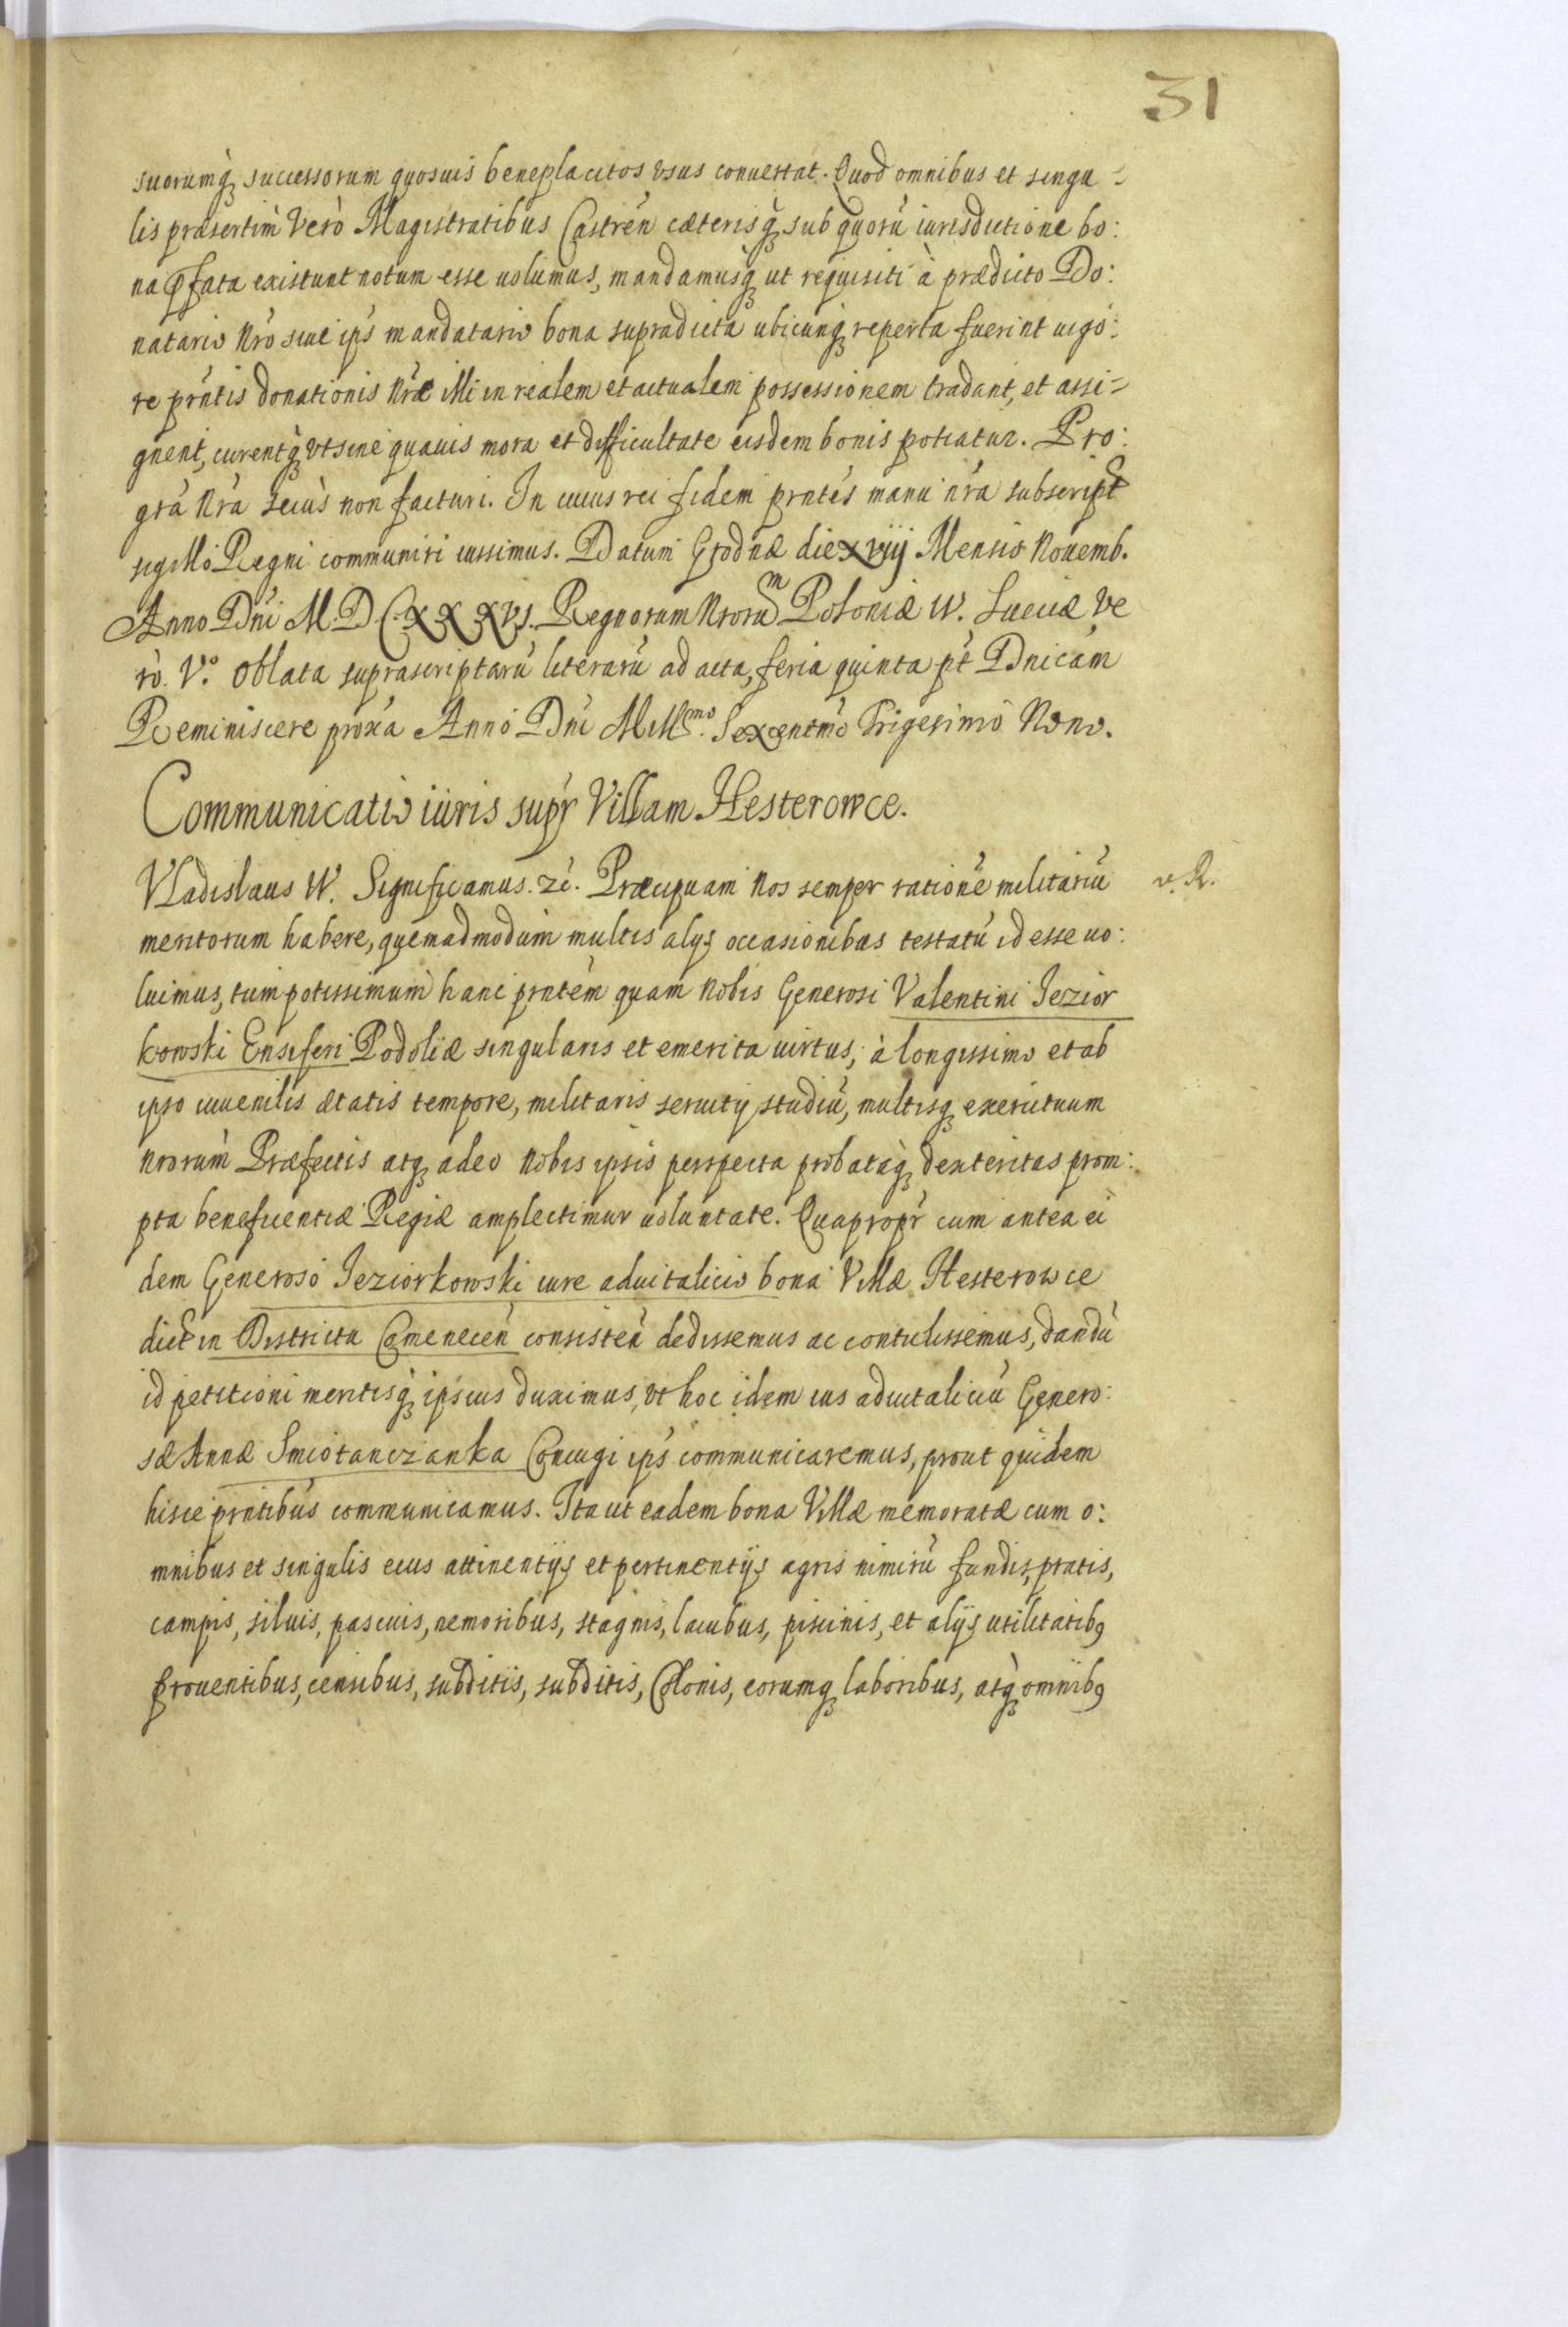 31
suorumq; successorum quosuis beneplacitos vsus conuertat. Quod omnibus et singu=
lis præsertim verò Magistratibus Castren̄ cæterisq; sub quorū iurisdictione bo:
na p̄fata existunt notum esse uolumus, mandamusq; ut requisiti à prædicto Do:
natario Nr̄o siue ip̄s mandatario bona supradicta ubicunq; reperta fuerint uigo:
re pr̄ntis donationis Nr̄æ illi in realem et actualem possessionem tradant, et assi=
gnent, curentq; vt sine quauis mora et difficultate eisdem bonis potiatur. Pro:
gr̄a Nr̄a secus non facturi. In cuius rei fidem pr̄ntes manu nr̄a subscript
sigillo Regni communiri iussimus. Datum Grodnæ die xviij Mensis Nouemb.
Anno Dn̄i M.D.C.XXXVJ. Regnorum Nrorum Poloniæ IV. Sueciæ ve
rò. V.º Oblata suprascriptarū literarū ad acta, feria quinta pt̄ Dn̄icam
Reminiscere prox̄a Anno Dn̄i Mill.mo Sexcentm̄o Trigesimo Nono.
Communicatio iuris supr̄ Villam Hesterowce.
Vladislaus IV. Significamus. zc̄. Præcipuam Nos semper rationē militariū
v. R.
meritorum habere, quemadmodum multis alijs occasionibus testatū id esse uo:
luimus, tum potissimum hanc pr̄ntem quam Nobis Generosi Valentini Jezior
kowski Ensiferi Podoliæ singularis et emerita uirtus, à longissimo et ab
ipso iuuenilis ætatis tempore, militaris seruitij studiū, multisq; exercituum
Nrorum Præfectis atq; adeo Nobis ipsis perspecta probataq; dexteritas prom:
pta beneficentiæ Regiæ amplectimur uoluntate. Quapropr̄ cum antea ei
dem Generoso Jeziorkowski iure aduitalicio bona Villæ Hesterowce
dict in Districtu Camenecen̄ consisten̄ dedissemus ac contulissemus, dandū
id petitioni meritisq; ipsius duximus, vt hoc idem ius aduitaliciū Genero:
sæ Annæ Smiotanczanka Coniugi ip̄s communicaremus, prout quidem
hisce pr̄ntibus communicamus. Ita ut eadem bona Villæ memoratæ cum o:
mnibus et singulis eius attinentijs et pertinentijs agris nimirū fundis, pratis,
campis, siluis, pascuis, nemoribus, stagnis, lacubus, piscinis, et alijs utilitatibꝰ
prouentibus, censibus, subditis, subditis, Colonis, eorumq; laboribus, atq; omnibꝰ